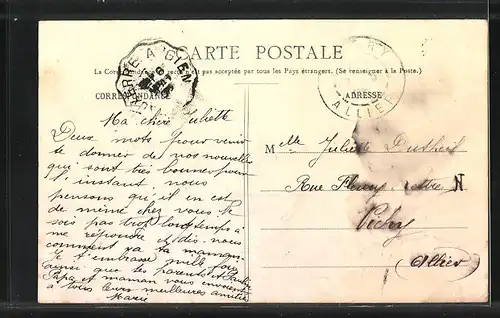 CARTE POSTALE
La Correspondance au recto n'est pas acceptée par tous les Pays étrangers. (Se renseigner à la Poste.)
CORRESPONDANCE
ADRESSE
A GIEN
ALLIER
Ma chère Juliette
Deux mots pour venir
te donner de nos nouvelles
qui sont très bonnes pour
l'instant, nous
pensons qu'il en est
de même chez vous. Ne
sois pas trop longtemps à
me répondre et dis-nous
comment va ta maman.
Je t'embrasse mille fois
ainsi que tes parents et
Papa et maman vous envoient
à tous leurs meilleures amitiés
Marie
Melle Juliette Dutheil
Rue Fleury
N
Vichy
Allier